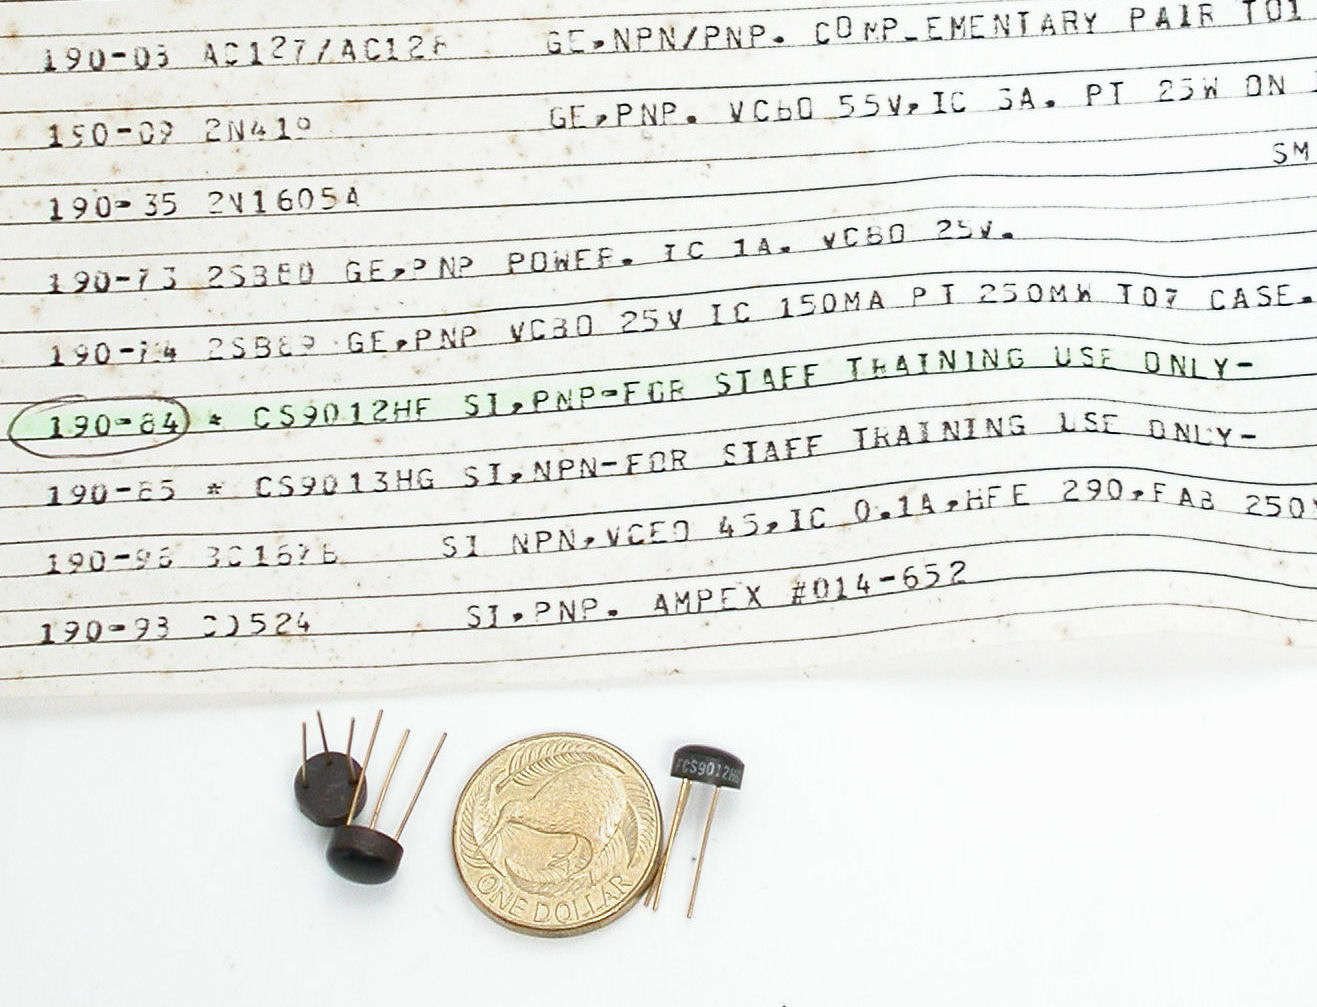 190-03 AC127/AC128 GE,NPN/PNP. COMPLEMENTARY PAIR TO1
190-09 2N419 GE,PNP. VCBO 55V,IC 3A. PT 25W ON
SM
190-35 2N1605A
190-73 2SB80 GE,PNP POWER. IC 1A. VCBO 25V.
190-74 2SB89 GE,PNP VCBO 25V IC 150MA PT 250MW TO7 CASE.
190-84 * CS9012HF SI,PNP-FOR STAFF TRAINING USE ONLY-
190-85 * CS9013HG SI,NPN-FOR STAFF TRAINING USE ONLY-
SI NPN,VCEO 45,IC 0.1A,HFE 290,FAB 250
190-93 SI.PNP. AMPEX #014-652
FCS9012HG
ONE DOLLAR